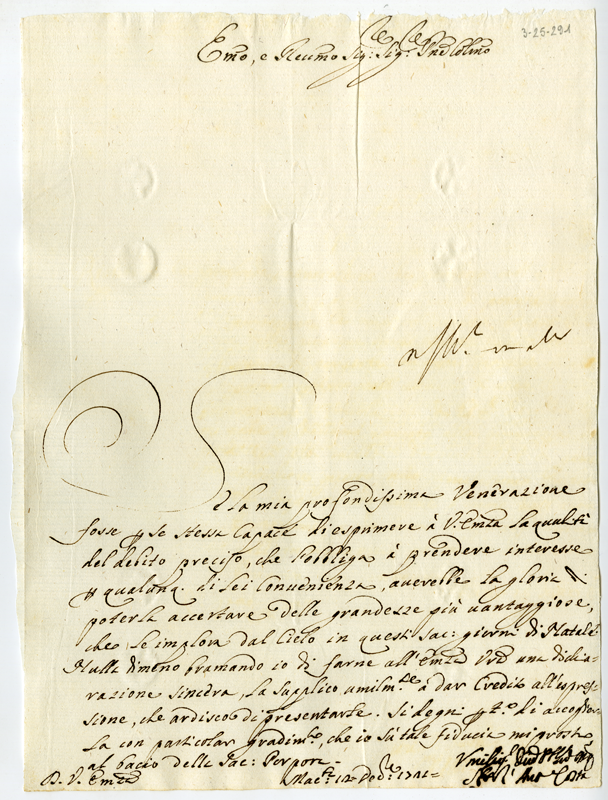 3-25-291
Emo, e Reumo Sig:re Sig:re Pne Colmo
Se la mia profondissima Venerazione
fosse p se stessa Capace di esprimere à V. Emza la qualità
del debito preciso, che l'obbliga à prendere interesse
p qualunq. di Lei Convenienza, averebbe la gloria di
poterla accertare delle grandezze più vantaggiose,
che Le implora dal Cielo in questi Sac: giorni di Natale
Nulla dimeno bramando io di farne all'Emza Vra una dichia-
razione sincera, la supplico umilmte à dar Credito all'espres-
sione, che ardisco di presentarle. Si degni pto di accoglier-
la con particolar gradimto, che io sù tale fiducia mi prostro
al bacio della Sac: Porpora.
D. V. Emza
Macta 12 Dec 1721